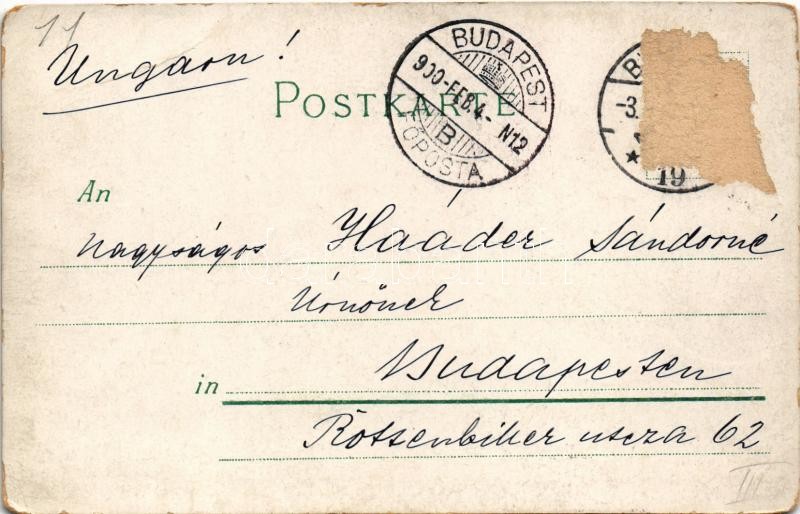 11
Ungarn!
POSTKARTE
BUDAPEST
900-FEB.4-N12
B
FŐPOSTA
-3.
19
An Nagyságos Haáder Sándorné
Úrnőnek
in Budapesten
Rottenbiller utcza 62
III